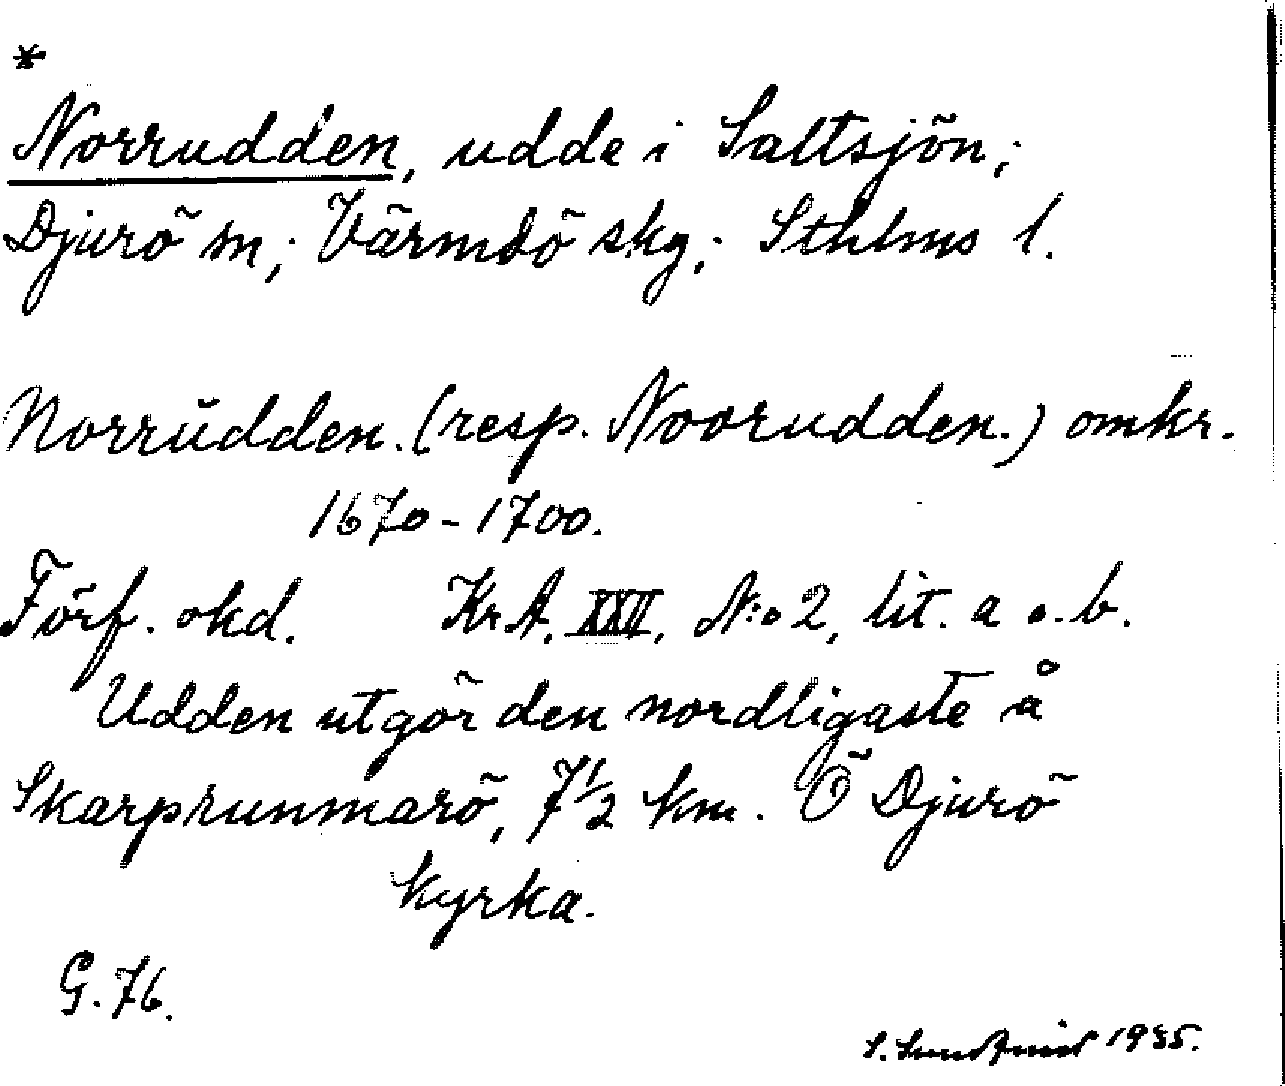 *
Norrudden, udde i Saltsjön;
Djurö sn; Värmdö skg; Sthlms l.
Norrŭdden. (resp. Noorudden.) omkr.
1670-1700.
Förf. okd. KrA. XXII, N:o 2, lit. a o. b.
Udden utgör den nordligaste å
Skarprunmarö, 7 1/2 km. Ö Djurö
kyrka.
G. 76.
S. 1935.